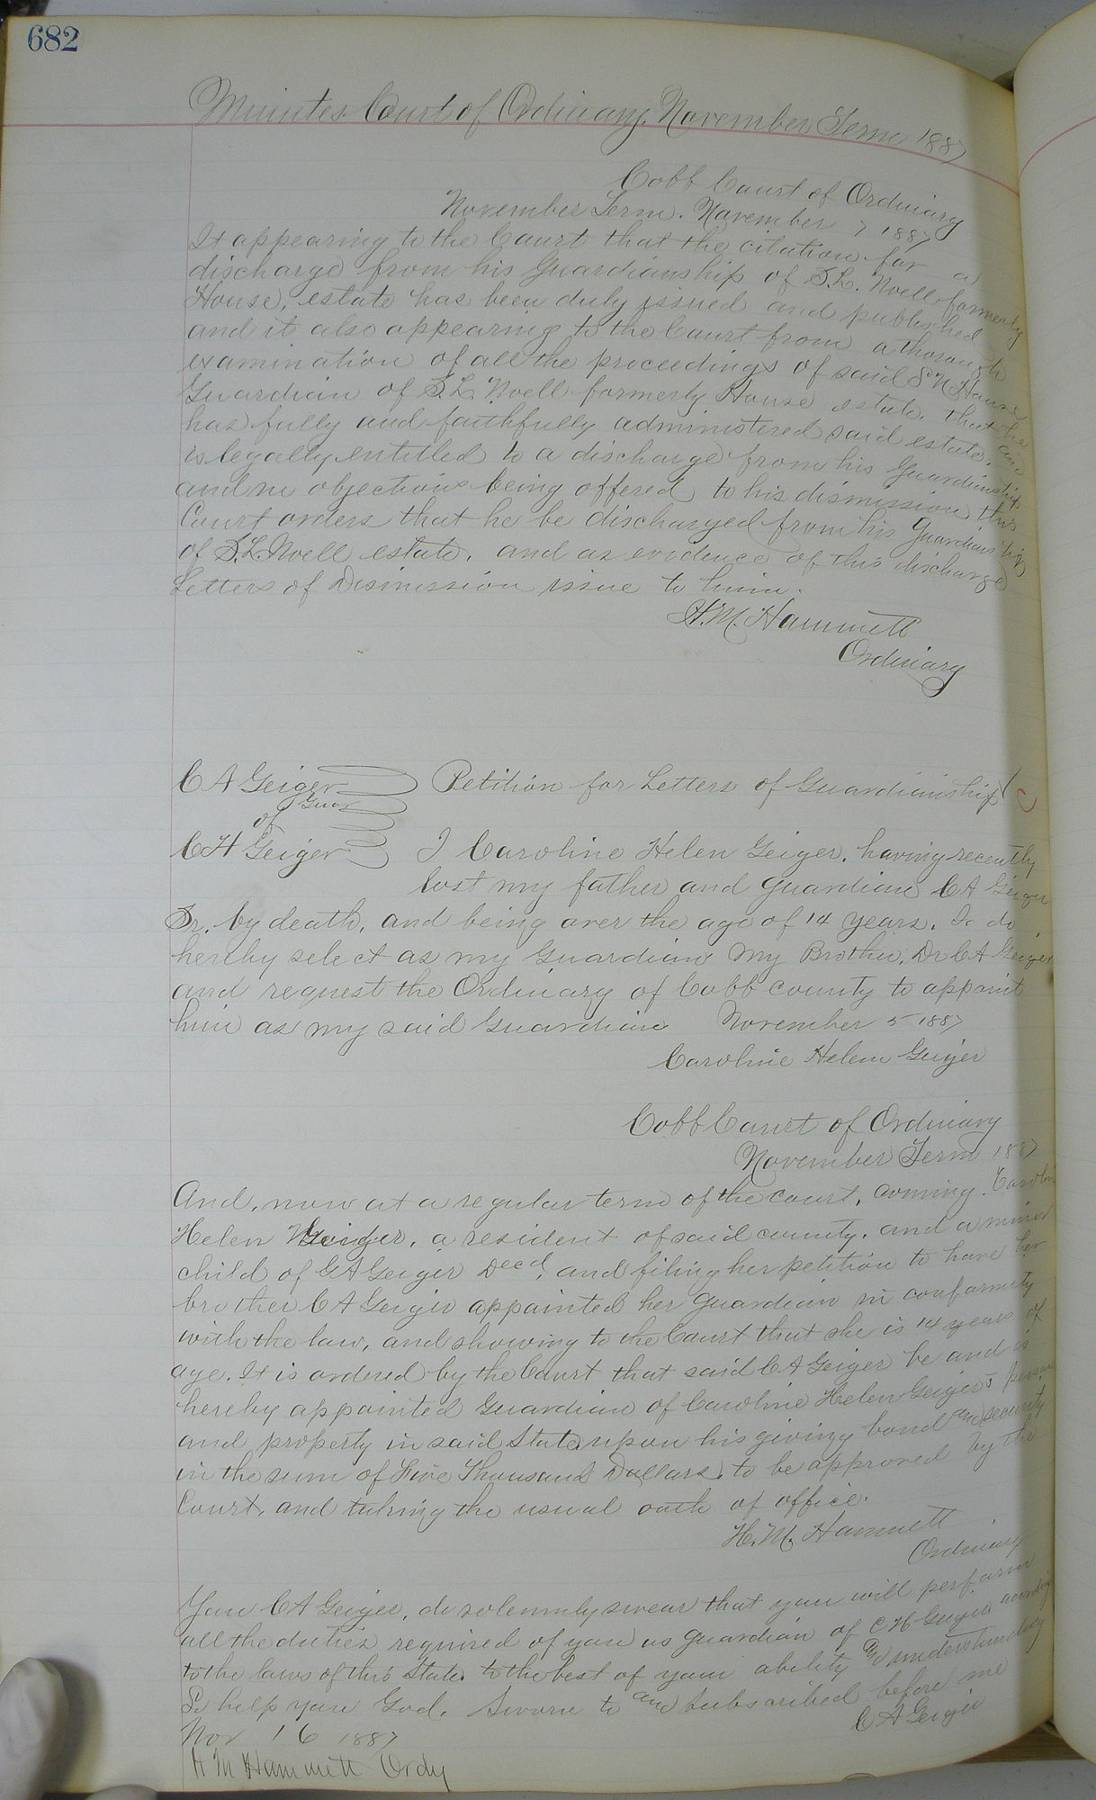 682
Minutes Court of Ordinary, November Term 1887
Cobb Court of Ordinary
November Term. November 7 1887
It appearing to the Court that the citation for a
discharge from his Guardianship of S.L. Noell formerly
House, estate has been duly issued and published
and it also appearing to the Court from a thorough
examination of all the proceedings of said S N House
Guardian of S.L. Noell formerly House estate, that he
has fully and faithfully administered said estate, and
is legally entitled to a discharge from his Guardianship
and no objections being offered to his dismission this
Court orders that he be discharged from his Guardianship
of S.L. Noell estate. and as evidence of this discharge
Letters of Dismission issue to him.
H.M. Hammett
Ordinary
C A Geiger Petition for Letters of Guardianship
Guar
of
C H Geiger I Caroline Helen Geiger, having recently
lost my father and guardian C A Geiger
Sr. by death, and being over the age of 14 years. I do
hereby select as my Guardian My Brother, Dr C A Geiger
and request the Ordinary of Cobb county to appoint
him as my said Guardian November 5 1887
Caroline Helen Geiger
Cobb Court of Ordinary
November Term 1887
And, now at a regular term of the court, coming. Caroline
Helen Geiger, a resident of said county, and a minor
child of C A Geiger Decd, and filing her petition to have her
brother C A Geiger appointed her Guardian in conformity
with the law, and showing to the Court that she is 14 years of
age. It is ordered by the Court that said C A Geiger be and is
hereby appointed Guardian of Caroline Helen Geiger's person
and property in said State, upon his giving bond and security
in the sum of Five Thousand Dollars, to be approved by the
Court, and taking the usual oath of office.
H. M. Hammett
Ordinary
You C A Geiger, do solemnly swear that you will perform
all the duties required of you as guardian of C H Geiger according
to the laws of this State to the best of your ability & understanding
So help you God. Sworn to and Subscribed before me
C A Geiger
Nov 16 1887
H M Hammett Ordy